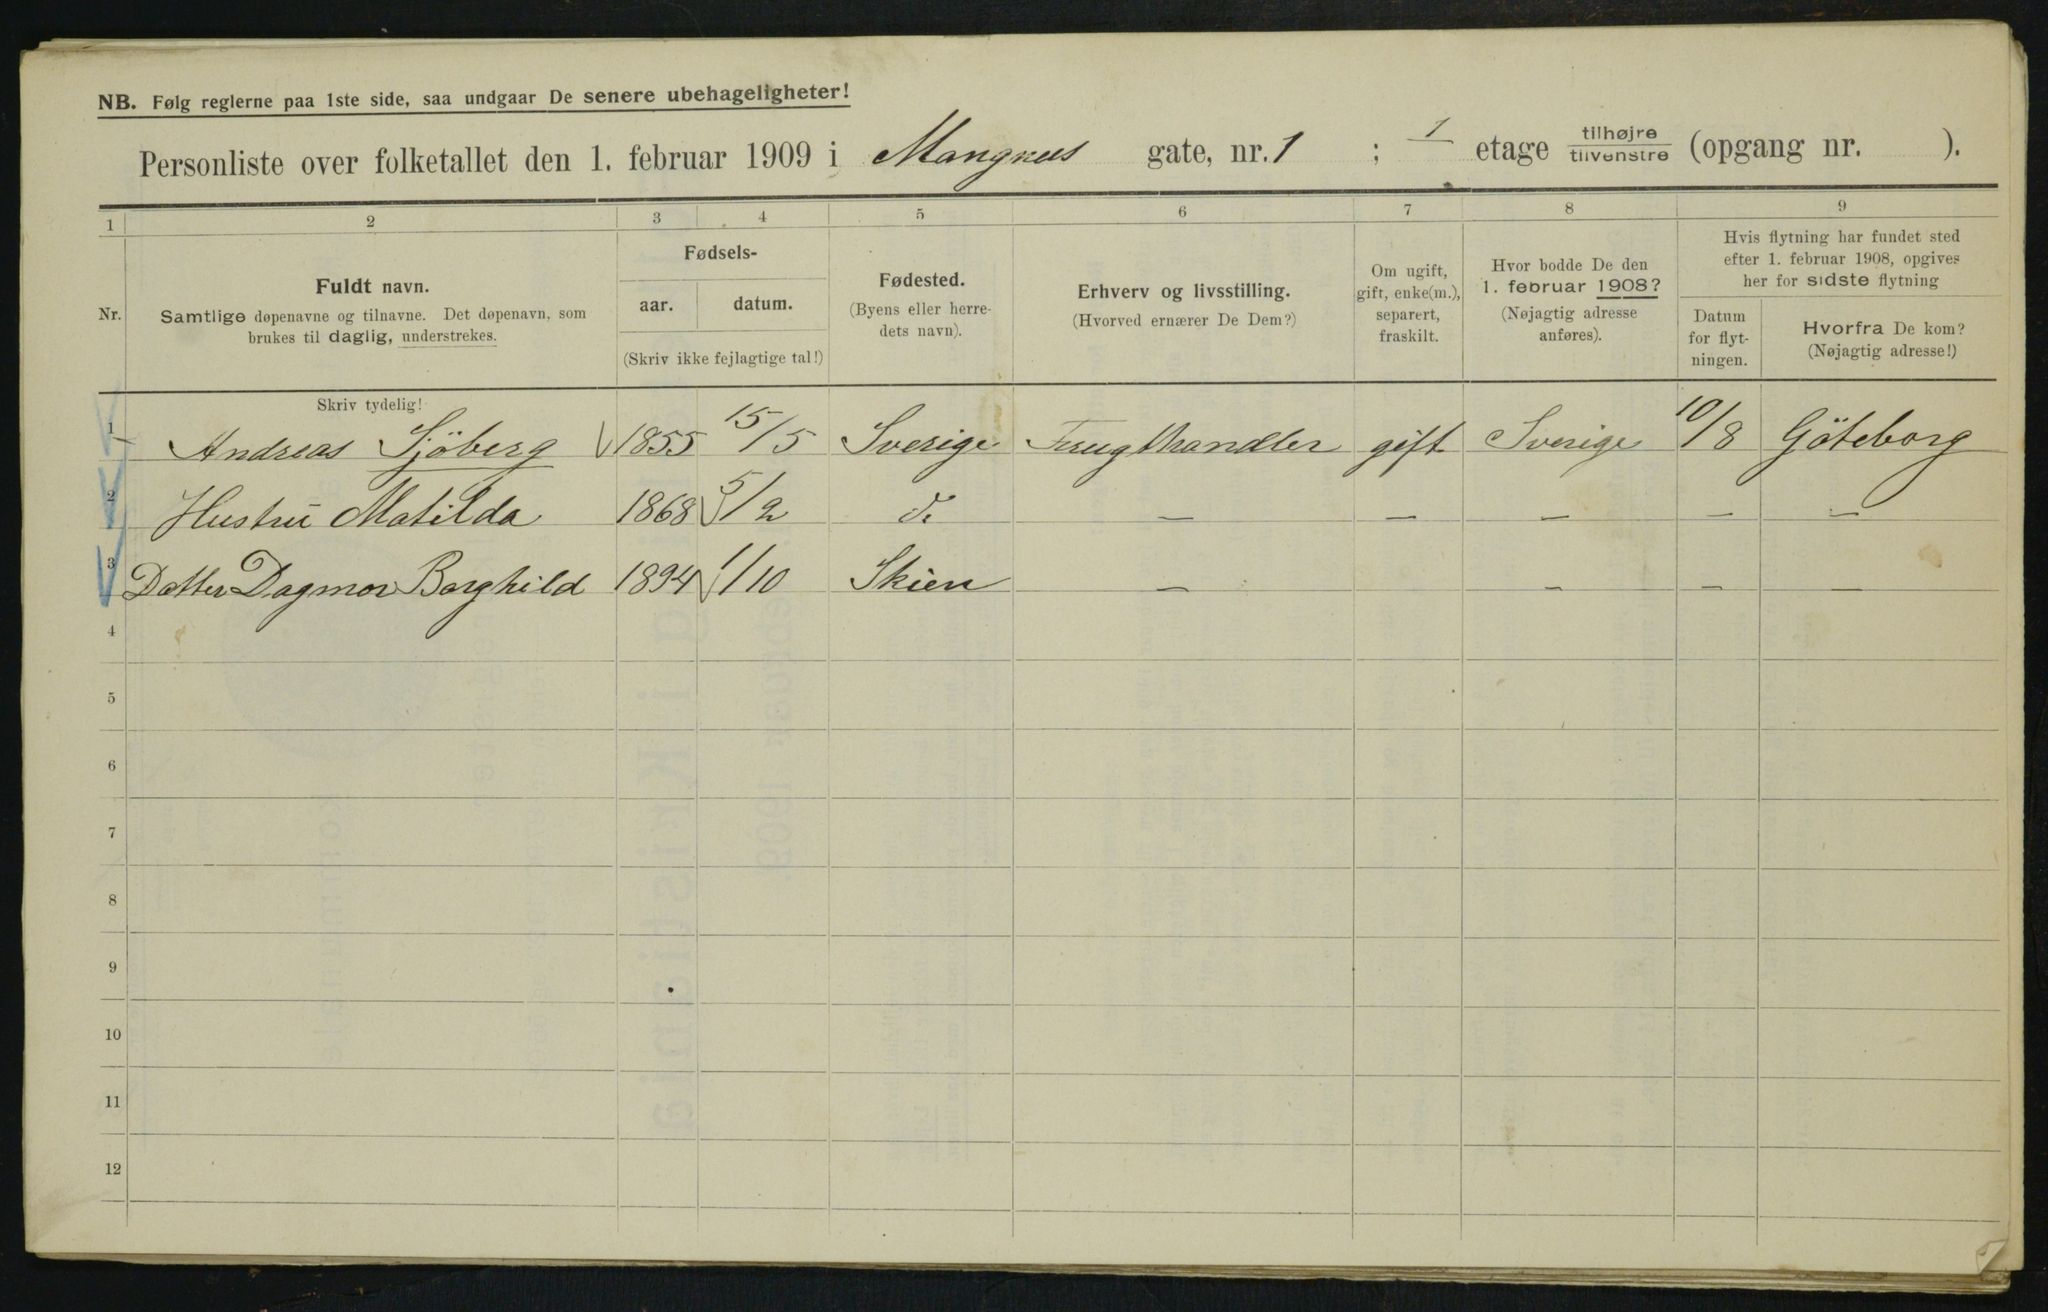 NB. Følg reglerne paa 1ste side, saa undgaar De senere ubehageligheter!
Personliste over folketallet den 1. februar 1909 i Mangnus gate, nr. 1 ; 1 etage tilhøjre tilvenstre (opgang nr. ).
1 2 3 4 5 6 7 8 9
Nr.
Fuldt navn.
Samtlige døpenavne og tilnavne. Det døpenavn, som
brukes til daglig, understrekes.
Skriv tydelig!
Fødsels-
aar. datum.
(Skriv ikke fejlagtige tal!)
Fødested.
(Byens eller herre-
dets navn).
Erhverv og livsstilling.
(Hvorved ernærer De Dem?)
Om ugift,
gift, enke(m.),
separert,
fraskilt.
Hvor bodde De den
1. februar 1908?
(Nøjagtig adresse
anføres).
Hvis flytning har fundet sted
efter 1. februar 1908, opgives
her for sidste flytning
Datum
for flyt-
ningen.
Hvorfra De kom?
(Nøjagtig adresse!)
1 Andreas Sjöberg 1855 15/5 Sverige Frugthandler gift Sverige 10/8 Göteborg
2 Hustru Matilda 1868 5/2 do — — — — —
3 Datter Dagmar Borghild 1894 1/10 Skien — — — —
4
5
6
7
8
9
10
11
12